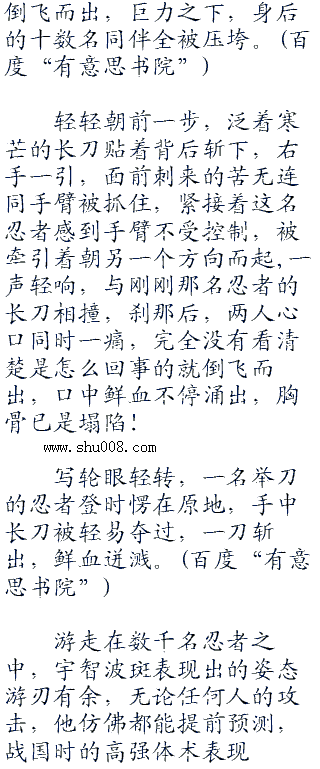 倒飞而出，巨力之下，身后
的十数名同伴全被压垮。(百
度“有意思书院”)
轻轻朝前一步，泛着寒
芒的长刀贴着背后斩下，右
手一引，面前刺来的苦无连
同手臂被抓住，紧接着这名
忍者感到手臂不受控制，被
牵引着朝另一个方向而起,一
声轻响，与刚刚那名忍者的
长刀相撞，刹那后，两人心
口同时一痛，完全没有看清
楚是怎么回事的就倒飞而
出，口中鲜血不停涌出，胸
骨已是塌陷！
www.shu008.com
写轮眼轻转，一名举刀
的忍者登时愣在原地，手中
长刀被轻易夺过，一刀斩
出，鲜血迸溅。(百度“有意
思书院”)
游走在数千名忍者之
中，宇智波斑表现出的姿态
游刃有余，无论任何人的攻
击，他仿佛都能提前预测，
战国时的高强体术表现